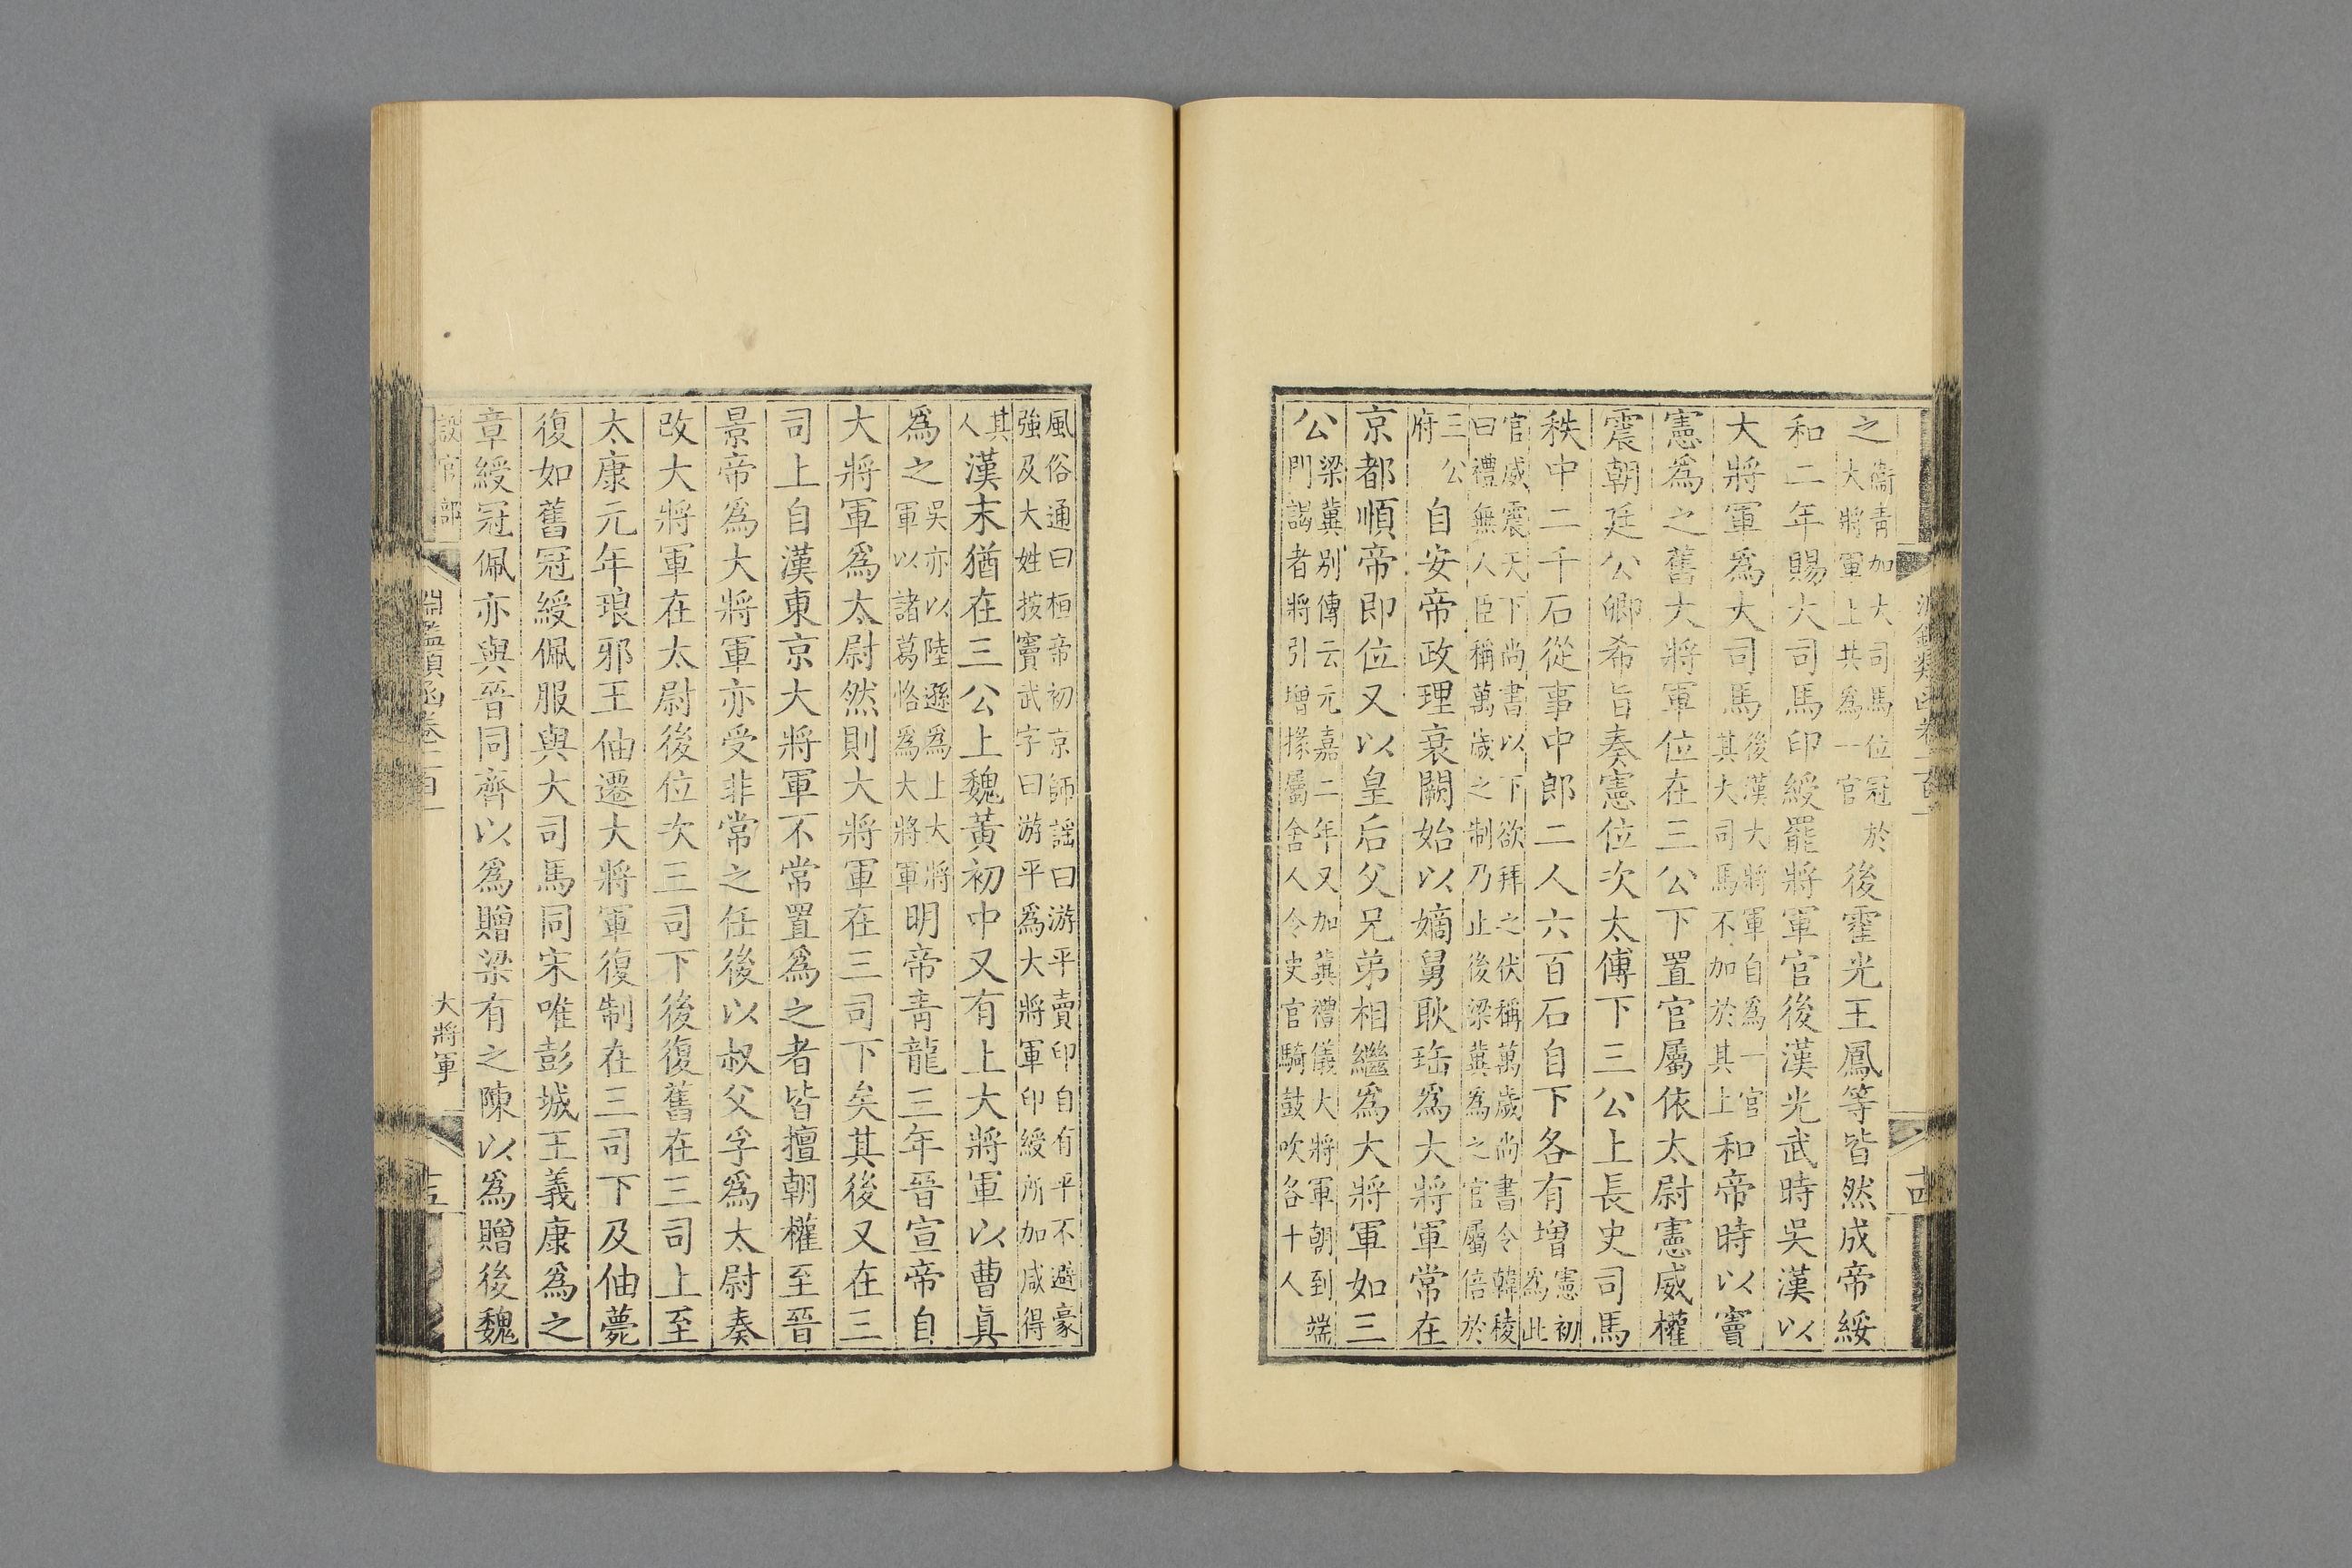 之衞青加大司馬位冠於大將軍上共爲一官後霍光王鳳等皆然成帝綏
和二年賜大司馬印綬罷將軍官後漢光武時吳漢以
大將軍爲大司馬後漢大將軍自爲一官其大司馬不加於其上和帝時以竇
憲爲之舊大將軍位在三公下置官屬依太尉憲威權
震朝廷公卿希旨奏憲位次太傅下三公上長史司馬
秩中二千石從事中郎二人六百石自下各有增憲初爲此
官威震天下尚書以下欲拜之伏稱萬歲尚書令韓稜
曰禮無人臣稱萬歲之制乃止後梁冀爲之官屬倍於
三公府自安帝政理衰闕始以嫡舅耿珤爲大將軍常在
京都順帝卽位又以皇后父兄弟相繼爲大將軍如三
公梁冀別傳云元嘉二年又加冀禮儀大將軍朝到端門謁者將引增掾屬舍人令史官騎鼓吹各十人
十四
風俗通曰桓帝初京師謡曰游平賣印自有平不避豪
強及大姓按竇武字曰游平爲大將軍印綬所加咸得
其人漢末猶在三公上魏黃初中又有上大將軍以曹眞
爲之吳亦以陸遜爲上大將軍以諸葛恪爲大將軍明帝靑龍三年晉宣帝自
大將軍爲太尉然則大將軍在三司下矣其後又在三
司上自漢東京大將軍不常置爲之者皆擅朝權至晉
景帝爲大將軍亦受非常之任後以叔父孚爲太尉奏
改大將軍在太尉後位次三司下後復舊在三司上至
太康元年琅邪王伷遷大將軍復制在三司下及伷薨
復如舊冠綬佩服與大司馬同宋唯彭城王義康爲之
章綬冠佩亦與晉同齊以爲贈梁有之陳以爲贈後魏
設官部
淵鑑類函卷一百一
大將軍
十五